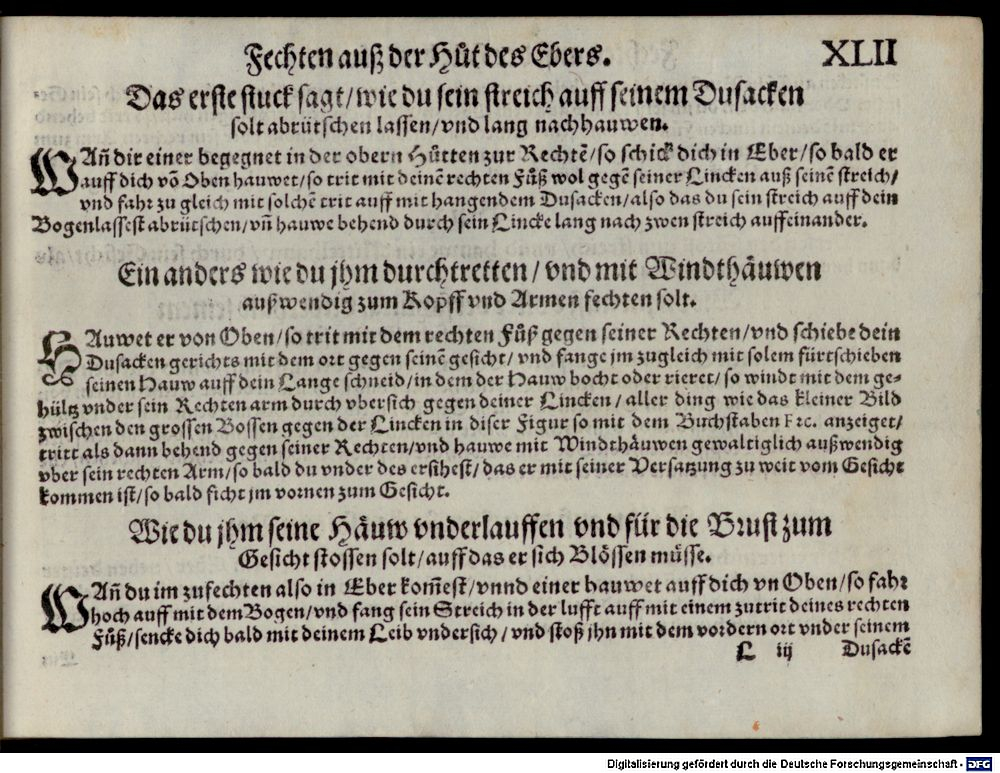 Fechten auß der Hůt des Ebers.
XLII
Das erste stuck sagt/ wie du sein streich auff seinem Dusacken
solt abrütschen lassen/ vnd lang nachhauwen.
WAñ dir einer begegnet in der obern Hütten zur Rechtẽ/ so schick dich in Eber/ so bald er
auff dich võ Oben hauwet/ so trit mit deinẽ rechten Fůß wol gegẽ seiner Lincken auß seinẽ streich/
vnd fahr zu gleich mit solchẽ trit auff mit hangendem Dusacken/ also das du sein streich auff dein
Bogen lassest abrütschen/ vñ hauwe behend durch sein Lincke lang nach zwen streich auffeinander.
Ein anders wie du jhm durchtretten/ vnd mit Windthäuwen
außwendig zum Kopff vnd Armen fechten solt.
HAuwet er von Oben/ so trit mit dem rechten Fůß gegen seiner Rechten/ vnd schiebe dein
Dusacken gerichts mit dem ort gegen seinẽ gesicht/ vnd fange jm zugleich mit solem fürtschieben
seinen Hauw auff dein Lange schneid/ in dem der Hauw bocht oder rieret/ so windt mit dem ge-
hültz vnder sein Rechten arm durch vbersich gegen deiner Lincken/ aller ding wie das kleiner Bild
zwischen den grossen Bossen gegen der Lincken in diser Figur so mit dem Buchstaben F ꝛc. anzeiget/
tritt als dann behend gegen seiner Rechten/ vnd hauwe mit Windthäuwen gewaltiglich außwendig
vber sein rechten Arm/ so bald du vnder des ersihest/ das er mit seiner Versatzung zu weit vom Gesicht
kommen ist/ so bald ficht jm vornen zum Gesicht.
Wie du jhm seine Häuw vnderlauffen vnd für die Brust zum
Gesicht stossen solt/ auff das er sich Blössen müsse.
WAñ du im zufechten also in Eber kom̃est/ vnnd einer hauwet auff dich vn Oben/ so fahr
hoch auff mit dem Bogen/ vnd fang sein Streich in der lufft auff mit einem zutrit deines rechten
Fůß/ sencke dich bald mit deinem Leib vndersich/ vnd stoß jhn mit dem vordern ort vnder seinem
L iij Dusackẽ
Digitalisierung gefördert durch die Deutsche Forschungsgemeinschaft - DFG